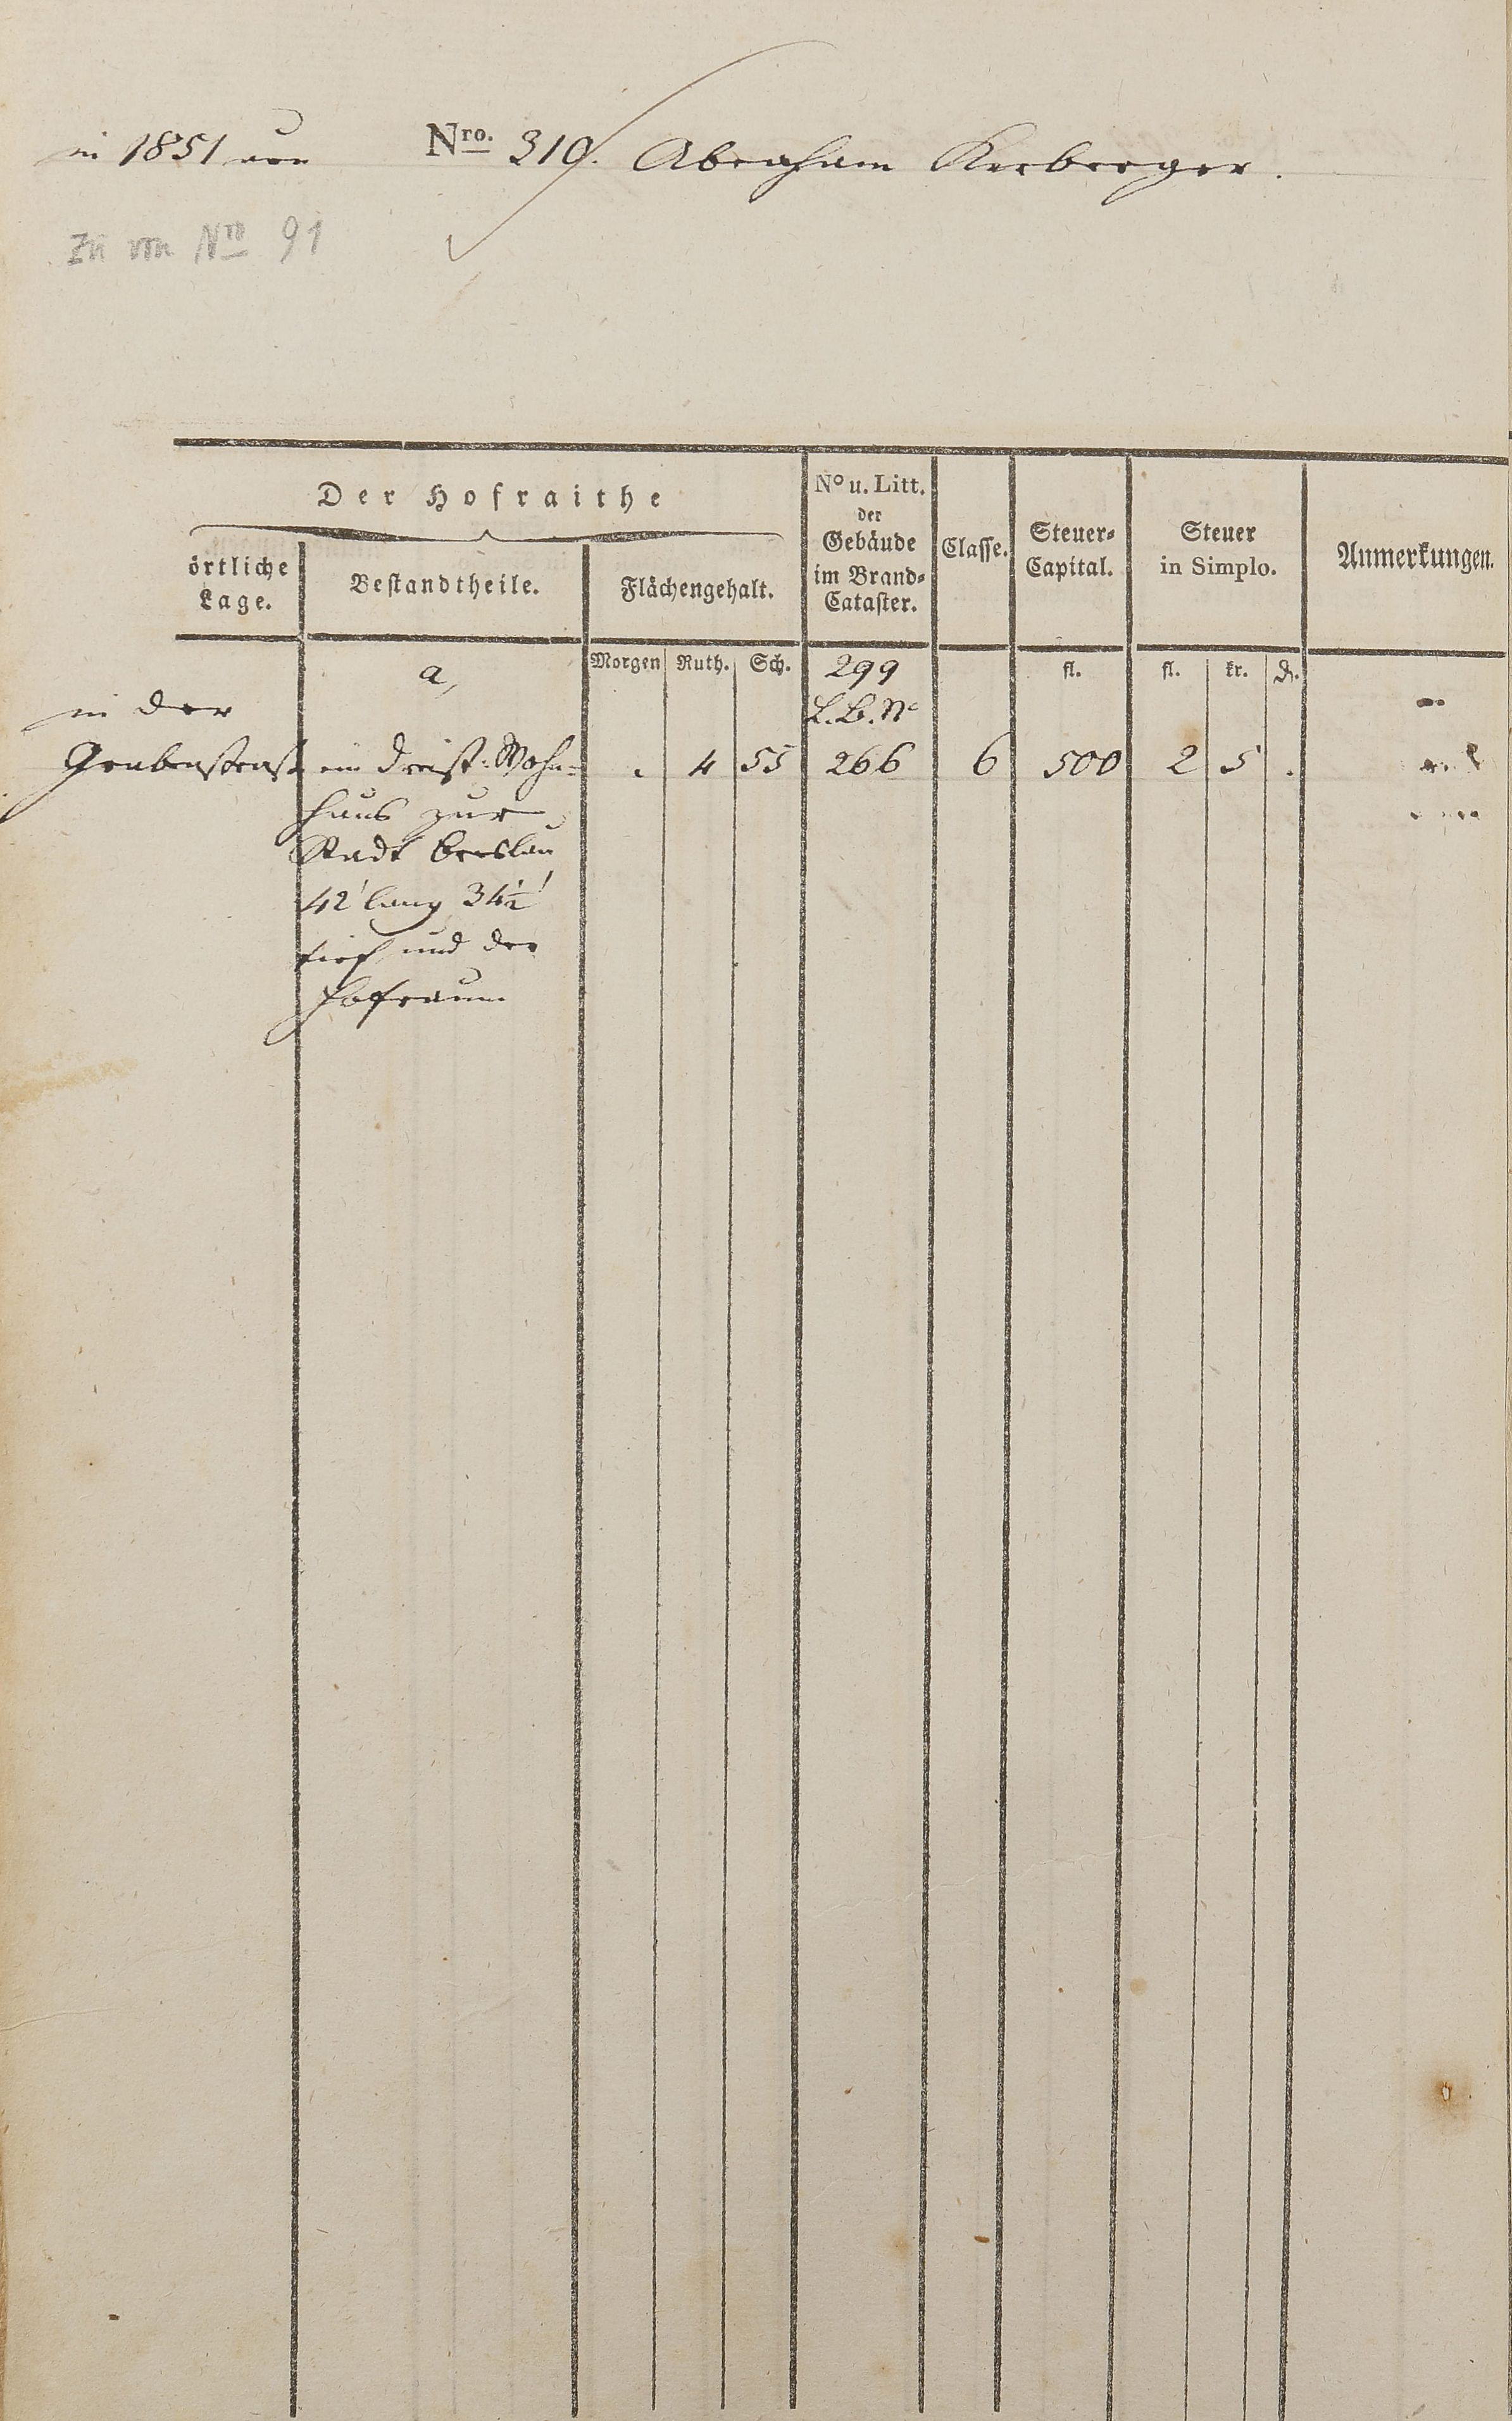 in 1851 von Nro. 310. Abraham Kerberger.
zu von Nro 91
Der Hofraithe
örtliche Lage.
Bestandtheile.
Flächengehalt.
No u. Litt. der Gebäude im Brand-Cataster.
Classe.
Steuer-Capital.
Steuer in Simplo.
Anmerkungen.
Morgen Ruth. Sch. fl. fl. kr. d.
a, 299
in der L. B. No
Grabenstrasse ein dreist: Wohn- . 4 55 266 6 500 2 5 .
haus zur
Stadt Breslau
42' lang 34½'
tief und der
Hofraum